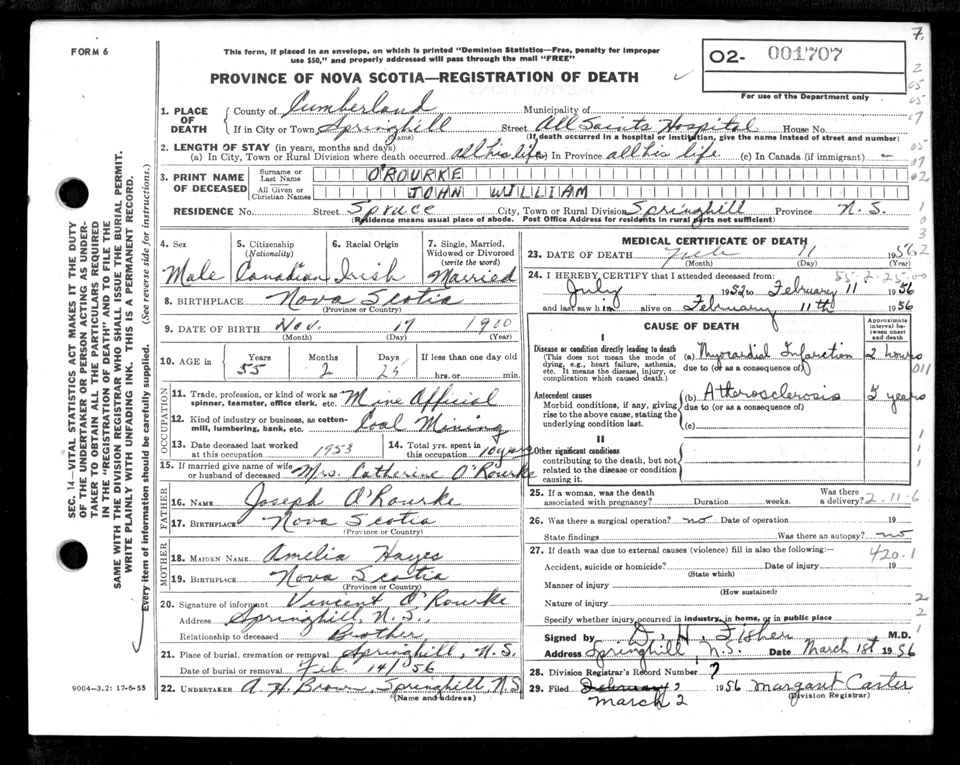 7.
FORM 6
This form, if placed in an envelope, on which is printed "Dominion Statistics—Free, penalty for improper
use $50," and properly addressed will pass through the mail "FREE"
PROVINCE OF NOVA SCOTIA—REGISTRATION OF DEATH
O2- 001707
For use of the Department only
1. PLACE OF DEATH County of Cumberland Municipality of
If in City or Town Springhill Street All Saints Hospital House No.
(Name) (If death occurred in a hospital or institution, give the name instead of street and number)
2. LENGTH OF STAY (in years, months and days)
(a) In City, Town or Rural Division where death occurred all his life (b) In Province all his life (c) In Canada (if immigrant) —
3. PRINT NAME OF DECEASED Surname or Last Name O'ROURKE
All Given or Christian Names JOHN WILLIAM
RESIDENCE No. Street Spruce City, Town or Rural Division Springhill Province N.S.
(Residence means usual place of abode. Post Office Address for residents in rural parts not sufficient)
4. Sex
Male
5. Citizenship (Nationality)
Canadian
6. Racial Origin
Irish
7. Single, Married, Widowed or Divorced (write the word)
Married
8. BIRTHPLACE Nova Scotia
(Province or Country)
9. DATE OF BIRTH Nov. 17 1900
(Month) (Day) (Year)
10. AGE in Years Months Days If less than one day old
55 2 25 hrs. or min.
OCCUPATION
11. Trade, profession, or kind of work as spinner, teamster, office clerk, etc. Mine Official
12. Kind of industry or business, as cotton-mill, lumbering, bank, etc. Coal Mining
13. Date deceased last worked at this occupation 1953
14. Total yrs. spent in this occupation 10 years
15. If married give name of wife or husband of deceased Mrs. Catherine O'Rourke
FATHER
16. NAME Joseph O'Rourke
17. BIRTHPLACE Nova Scotia
(Province or Country)
MOTHER
18. MAIDEN NAME Amelia Hayes
19. BIRTHPLACE Nova Scotia
(Province or Country)
20. Signature of informant Vincent O'Rourke
Address Springhill, N.S.,
Relationship to deceased Brother
21. Place of burial, cremation or removal Springhill, N.S.
Date of burial or removal Feb. 14, '56
22. UNDERTAKER A. H. Brown, Springhill N.S
(Name and address)
9004—3.2: 17-6-55
MEDICAL CERTIFICATE OF DEATH
23. DATE OF DEATH 11 1956
(Month) (Day) (Year)
24. I HEREBY CERTIFY that I attended deceased from:
July 1952 to February 11 1956
and last saw him alive on February 11th 1956
CAUSE OF DEATH
Approximate interval between onset and death
I
Disease or condition directly leading to death
(This does not mean the mode of dying, e.g., heart failure, asthenia, etc. It means the disease, injury, or complication which caused death.)
(a) Myocardial Infarction 2 hours
due to (or as a consequence of)
Antecedent causes
Morbid conditions, if any, giving rise to the above cause, stating the underlying condition last.
(b) Atherosclerosis 5 years
due to (or as a consequence of)
(c)
II
Other significant conditions
contributing to the death, but not related to the disease or condition causing it.
25. If a woman, was the death associated with pregnancy? Duration weeks. Was there a delivery?
2-11-6
26. Was there a surgical operation? no Date of operation 19
State findings Was there an autopsy? no
27. If death was due to external causes (violence) fill in also the following:—
420.1
Accident, suicide or homicide? Date of injury 19
(State which)
Manner of injury
(How sustained)
Nature of injury
Specify whether injury occurred in industry, in home, or in public place
Signed by D. H. Fisher M.D.
Address Springhill N.S. Date March 1st 1956
28. Division Registrar's Record Number 7
29. Filed February, 1956 Margaret Carter
March 2 (Division Registrar)
SEC. 14—VITAL STATISTICS ACT MAKES IT THE DUTY
OF THE UNDERTAKER OR PERSON ACTING AS UNDER-
TAKER TO OBTAIN ALL THE PARTICULARS REQUIRED
IN THE "REGISTRATION OF DEATH" AND TO FILE THE
SAME WITH THE DIVISION REGISTRAR WHO SHALL ISSUE THE BURIAL PERMIT.
WRITE PLAINLY WITH UNFADING INK. THIS IS A PERMANENT RECORD.
Every item of information should be carefully supplied. (See reverse side for instructions.)